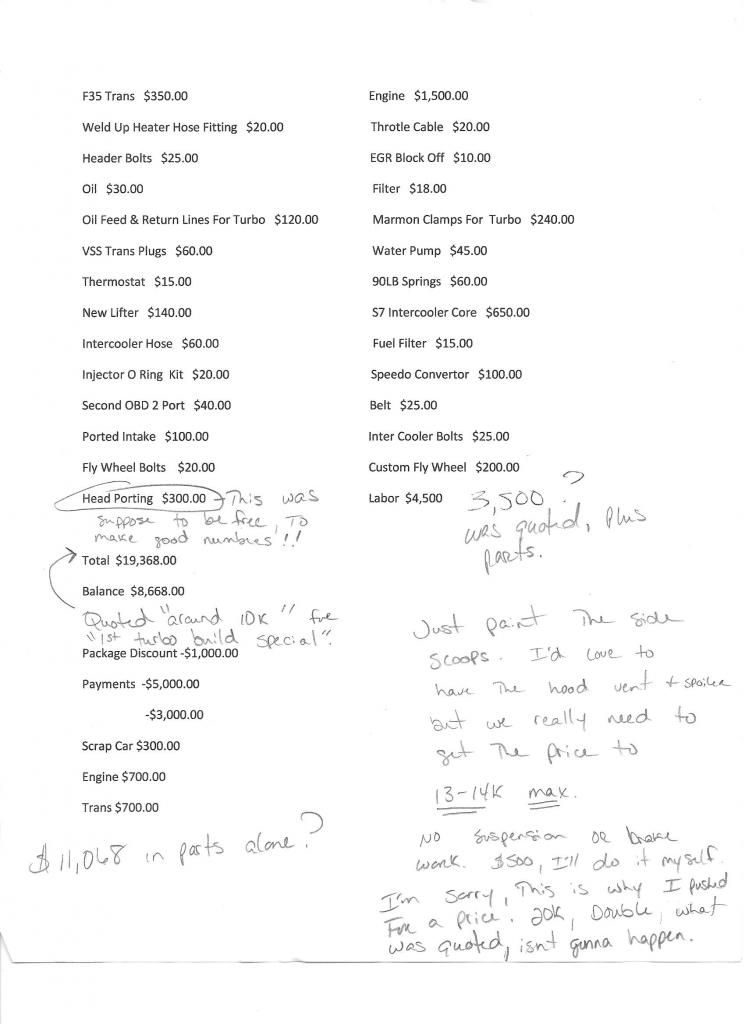 F35 Trans $350.00
Engine $1,500.00
Weld Up Heater Hose Fitting $20.00
Throtle Cable $20.00
Header Bolts $25.00
EGR Block Off $10.00
Oil $30.00
Filter $18.00
Oil Feed & Return Lines For Turbo $120.00
Marmon Clamps For Turbo $240.00
VSS Trans Plugs $60.00
Water Pump $45.00
Thermostat $15.00
90LB Springs $60.00
New Lifter $140.00
S7 Intercooler Core $650.00
Intercooler Hose $60.00
Fuel Filter $15.00
Injector O Ring Kit $20.00
Speedo Convertor $100.00
Second OBD 2 Port $40.00
Belt $25.00
Ported Intake $100.00
Inter Cooler Bolts $25.00
Fly Wheel Bolts $20.00
Custom Fly Wheel $200.00
Head Porting $300.00 This was
suppose to be free, To
make good numbres!!
Labor $4,500 3,500?
was quoted, plus
parts.
Total $19,368.00
Balance $8,668.00
Quoted "around 10K" for
"1st turbo build special".
Package Discount -$1,000.00
Payments -$5,000.00
-$3,000.00
Scrap Car $300.00
Engine $700.00
Trans $700.00
$11,068 in parts alone?
Just paint The side
scoops. I'd love to
have The hood vent + spoiler
but we really need to
get The price to
13-14K max.
NO suspension or brake
work. $500, I'll do it myself.
I'm sorry, This is why I pushed
For a price. 20K, Double, what
was quoted, isnt gunna happen.